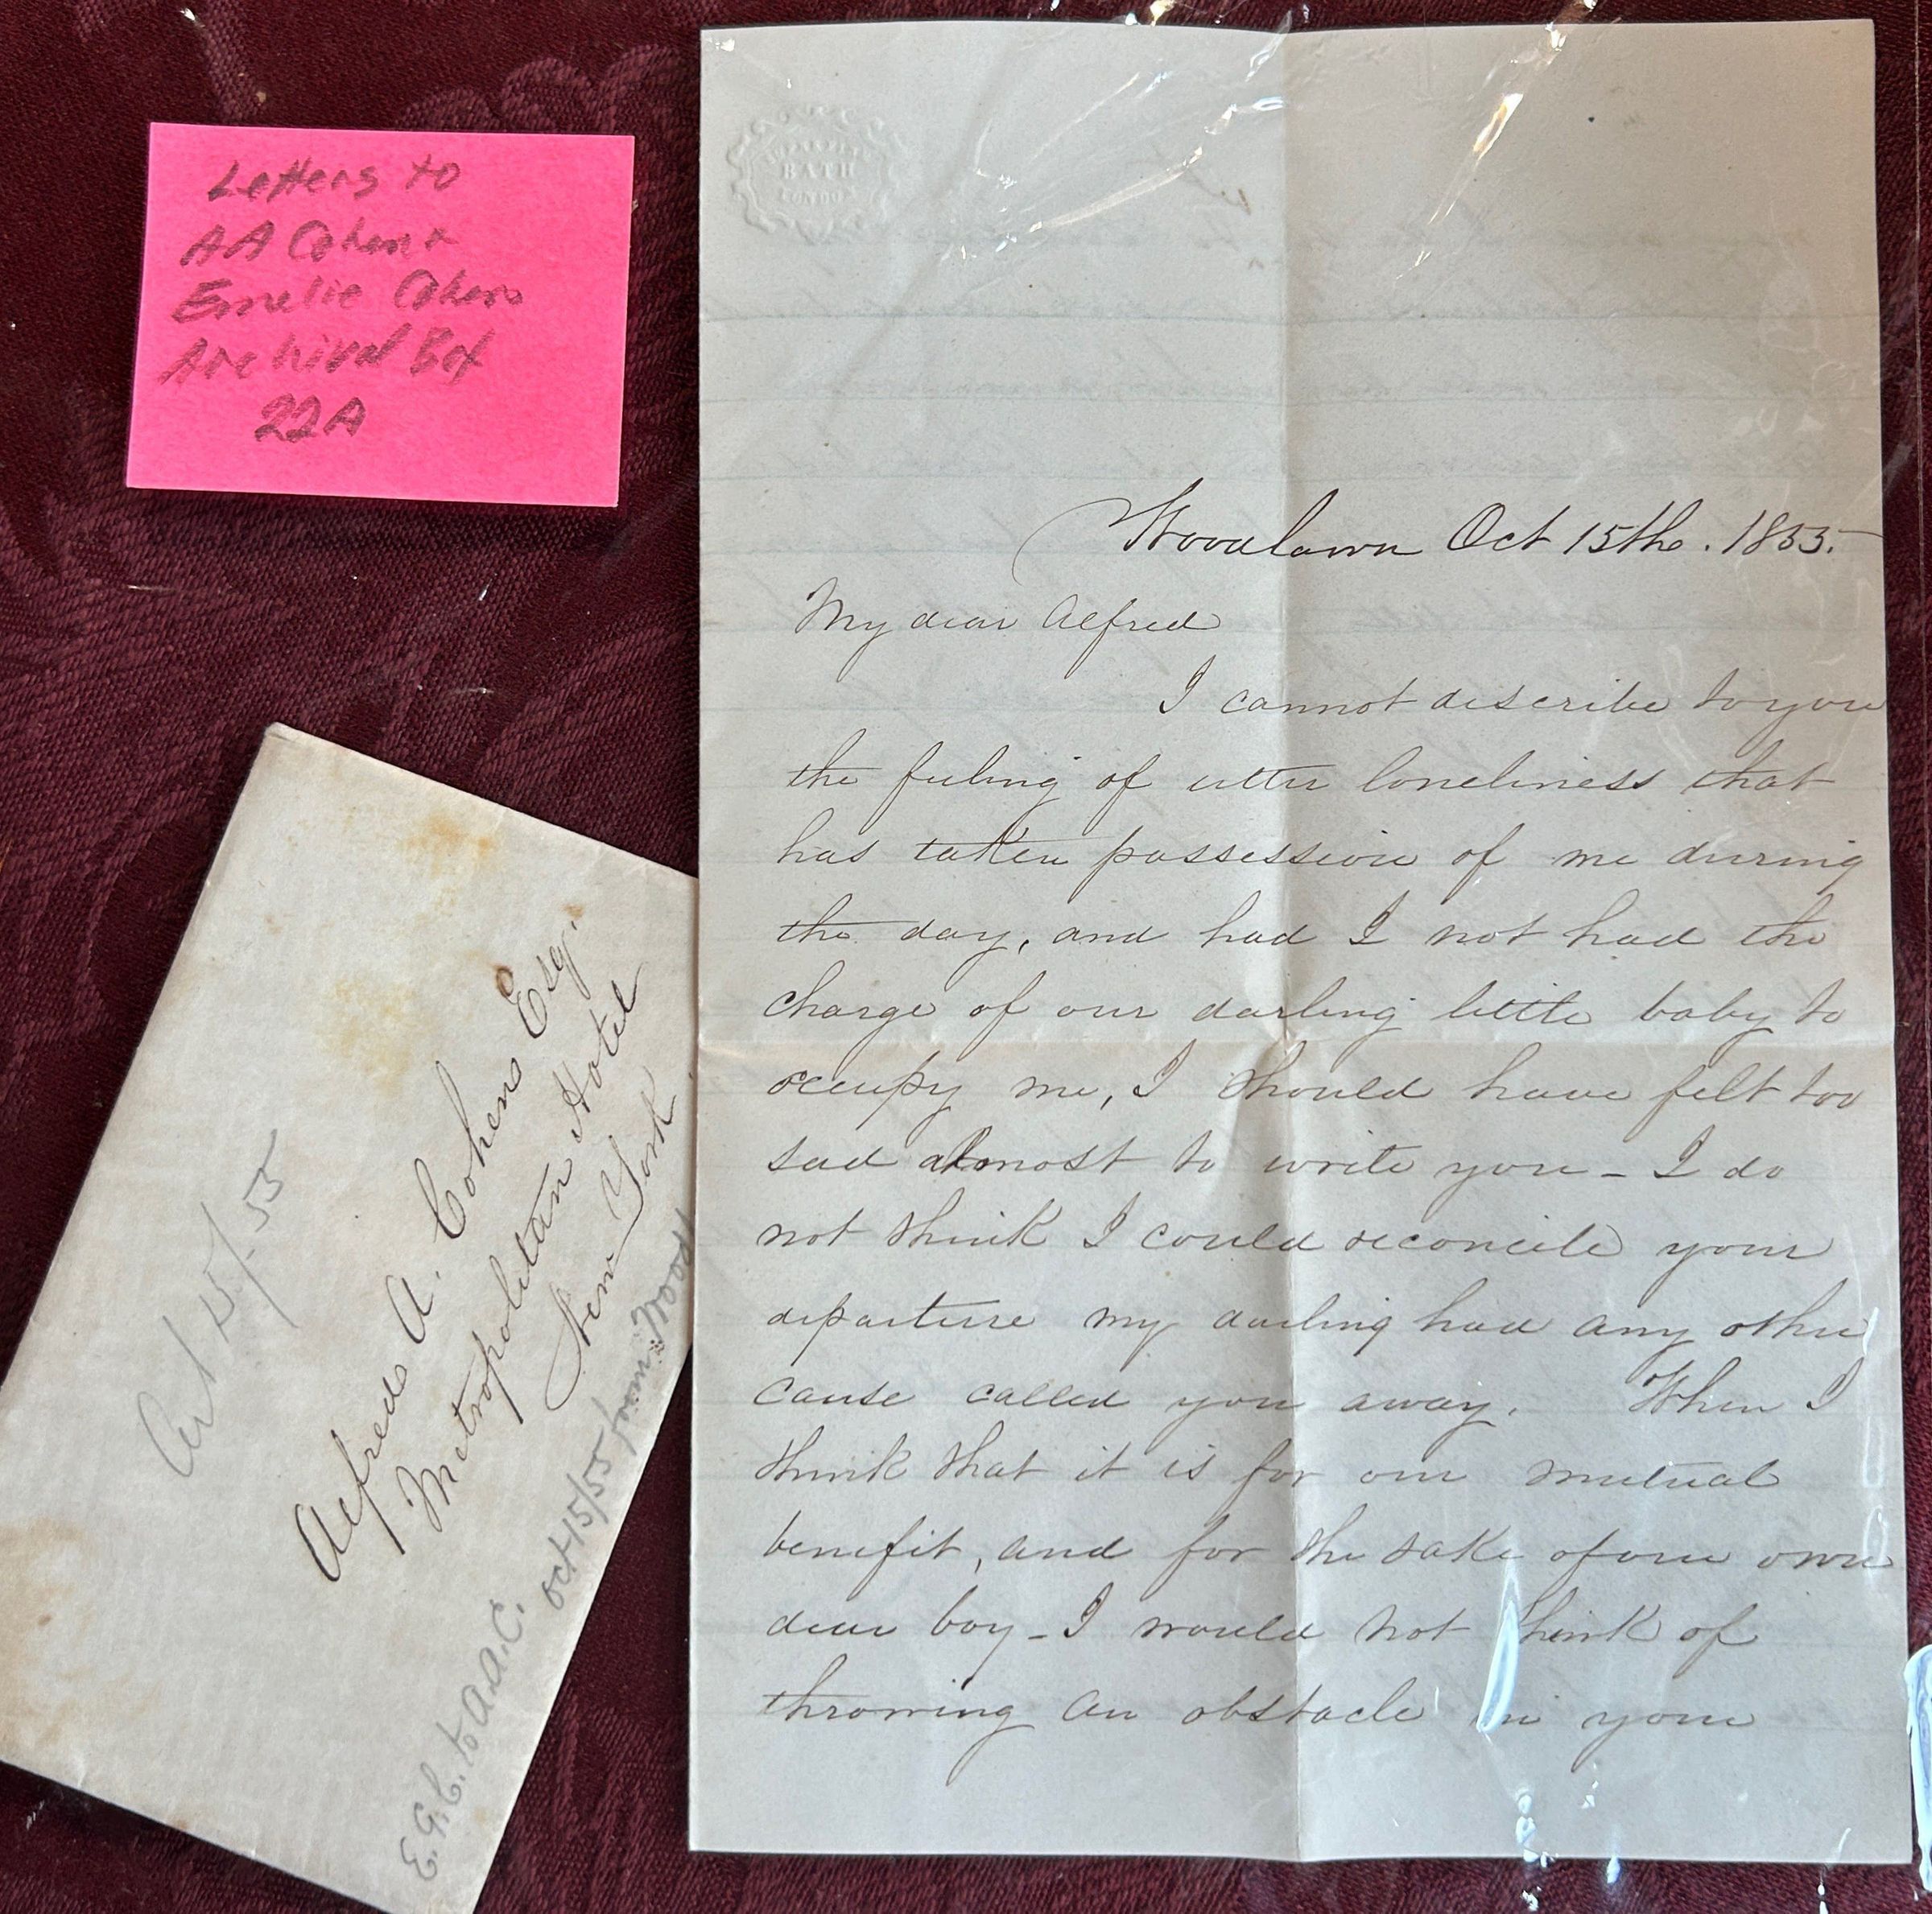 Letters to
AA Cohen +
Emelie Cohen
Archival Box
22A
BATH
LONDON
Woodlawn Oct 15th. 1855.
My dear Alfred
I cannot describe to you
the feeling of utter loneliness that
has taken possession of me during
the day, and had I not had the
charge of our darling little baby to
occupy me, I should have felt too
sad almost to write you - I do
not think I could reconcile your
departure my darling had any other
cause called you away. When I
think that it is for our mutual
benefit, and for the sake of our own
dear boy - I would not think of
throwing an obstacle in your
Alfred A. Cohen Esq.
Metropolitan Hotel
New York
15/-55
E.G.C. to A.A.C.
Oct 15/55 from Wood